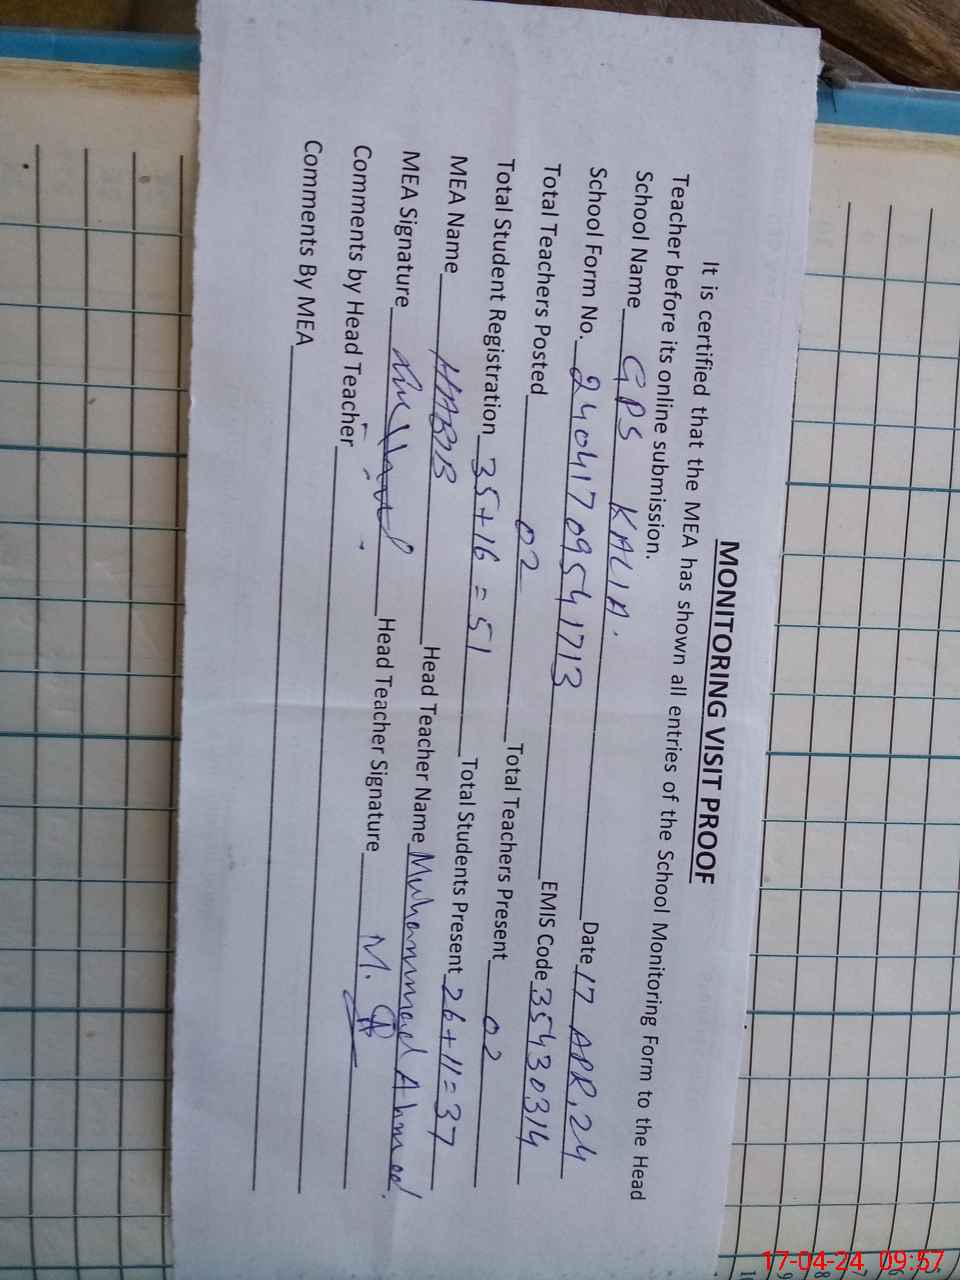 MONITORING VISIT PROOF
It is certified that the MEA has shown all entries of the School Monitoring Form to the Head
Teacher before its online submission.
School Name GPS KALIA. Date 17 APR, 24
School Form No. 24041709541713 EMIS Code 35430314
Total Teachers Posted 02 Total Teachers Present 02
Total Student Registration 35+16 = 51 Total Students Present 26+11=37
MEA Name HABIB Head Teacher Name Muhammad Ahmed.
MEA Signature Head Teacher Signature M.
Comments by Head Teacher
Comments By MEA
17-04-24 09:57